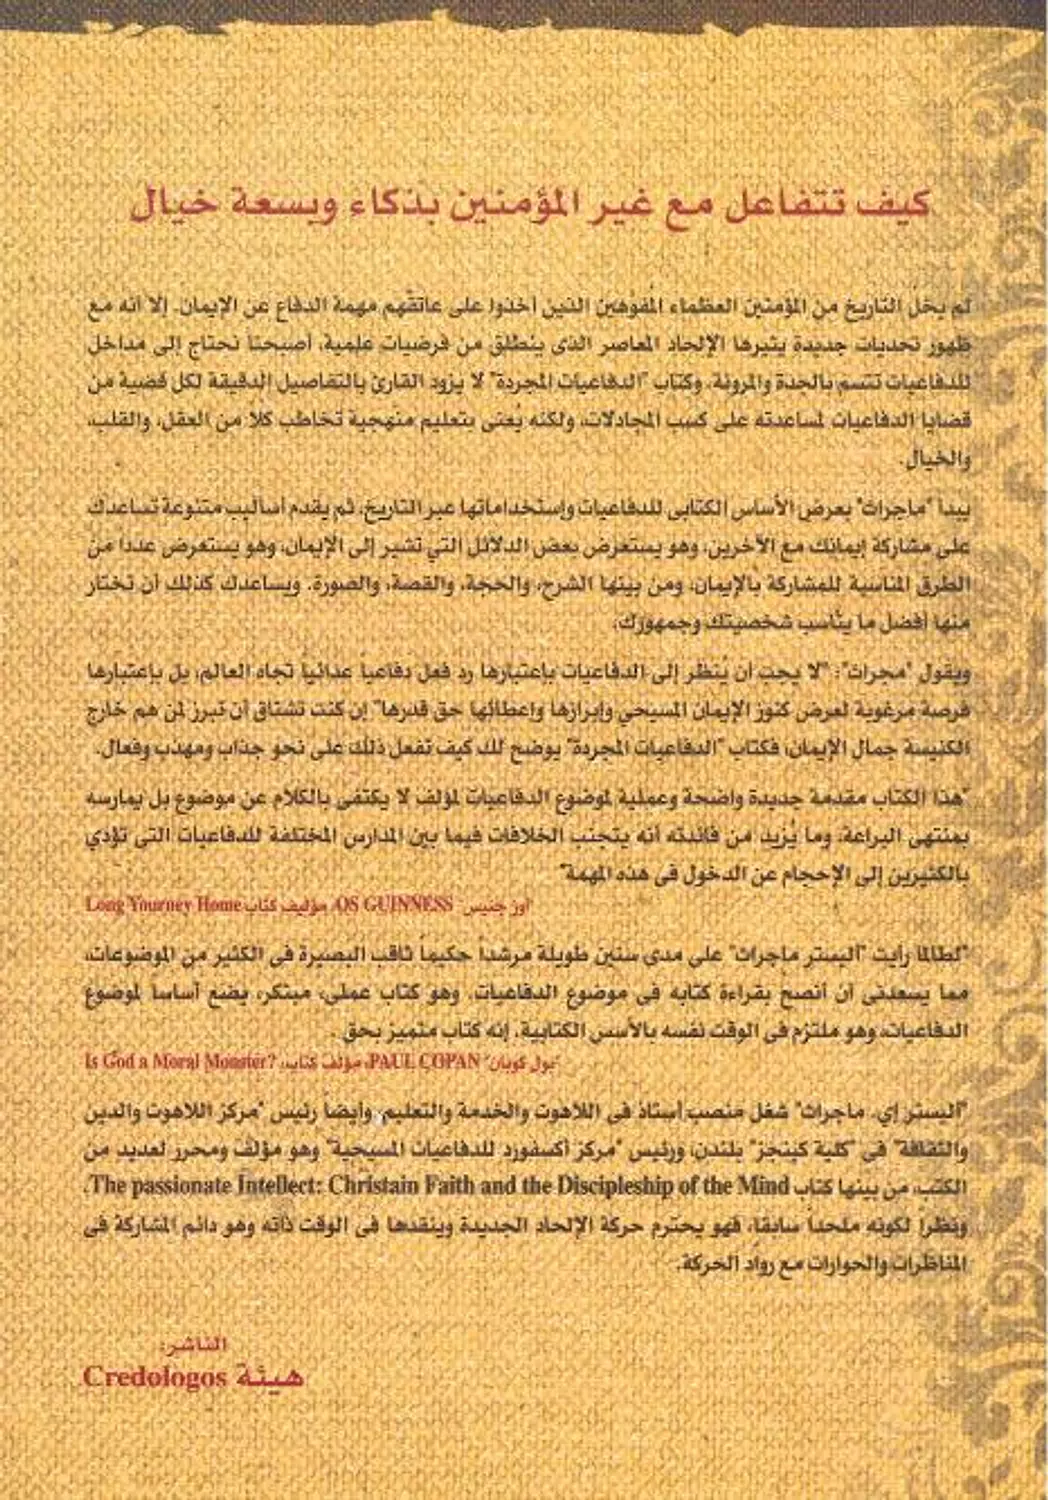 كيف تتفاعل مع غير المؤمنين بذكاء وبسعة خيال
لم يخلُ التاريخ من المؤمنين العظماء المُفوَّهين الذين أخذوا على عاتقهم مهمة الدفاع عن الإيمان. إلا أنه مع
ظهور تحديات جديدة يثيرها الإلحاد المعاصر الذى ينطلق من فرضيات علمية، أصبحنا نحتاج إلى مداخل
للدفاعيات تتسم بالجدة والمرونة. وكتاب "الدفاعيات المجردة" لا يزود القارئ بالتفاصيل الدقيقة لكل قضية من
قضايا الدفاعيات لمساعدته على كسب المجادلات، ولكنه يُعنى بتعليم منهجية تخاطب كلا من العقل، والقلب،
والخيال.
يبدأ "ماجراث" بعرض الأساس الكتابى للدفاعيات وإستخداماتها عبر التاريخ، ثم يقدم أساليب متنوعة تساعدك
على مشاركة إيمانك مع الآخرين، وهو يستعرض بعض الدلائل التي تشير إلى الإيمان، وهو يستعرض عددا من
الطرق المناسبة للمشاركة بالإيمان، ومن بينها الشرح، والحجة، والقصة، والصورة. ويساعدك كذلك أن تختار
منها أفضل ما يناسب شخصيتك وجمهورك.
ويقول "مجراث": "لا يجب أن يُنظر إلى الدفاعيات بإعتبارها رد فعل دفاعياً عدائياً تجاه العالم، بل بإعتبارها
فرصة مرغوبة لعرض كنوز الإيمان المسيحي وإبرازها وإعطائها حق قدرها" إن كنت تشتاق أن تبرز لمن هم خارج
الكنيسة جمال الإيمان، فكتاب "الدفاعيات المجردة" يوضح لك كيف تفعل ذلك على نحو جذاب ومهذب وفعال.
"هذا الكتاب مقدمة جديدة واضحة وعملية لموضوع الدفاعيات لمؤلف لا يكتفى بالكلام عن موضوع بل يمارسه
بمنتهى البراعة، وما يُزيد من فائدته أنه يتجنب الخلافات فيما بين المدارس المختلفة للدفاعيات التى تؤدي
بالكثيرين إلى الإحجام عن الدخول فى هذه المهمة"
"أوز جنيس" OS GUINNESS، مؤليف كتاب Long Yourney Home
"لطالما رأيت "أليستر ماجراث" على مدى سنين طويلة مرشداً حكيماً ثاقب البصيرة فى الكثير من الموضوعات،
مما يسعدنى أن أنصح بقراءة كتابه فى موضوع الدفاعيات. وهو كتاب عملى، مبتكر، يضع أساساً لموضوع
الدفاعيات، وهو ملتزم فى الوقت نفسه بالأسس الكتابية. إنه كتاب متميز بحق.
"بول كوبان" PAUL COPAN، مؤلف كتاب، Is God a Moral Monster?
"أليستر إي. ماجراث" شغل منصب أستاذ فى اللاهوت والخدمة والتعليم، وأيضاً رئيس "مركز اللاهوت والدين
والثقافة" فى "كلية كينجز" بلندن، ورئيس "مركز أكسفورد للدفاعيات المسيحية" وهو مؤلف ومحرر لعديد من
الكتب، من بينها كتاب The passionate Intellect: Christain Faith and the Discipleship of the Mind.
ونظرا لكونه ملحداً سابقاً، فهو يحترم حركة الإلحاد الجديدة وينقدها فى الوقت ذاته وهو دائم المشاركة فى
المناظرات والحوارات مع رواد الحركة.
الناشر:
هيئة Credologos